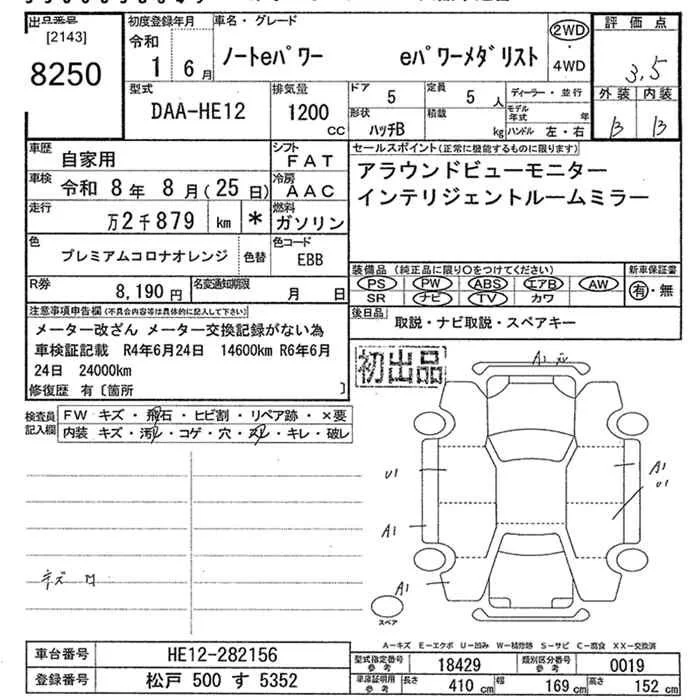 出品番号
[2143]
8250
初度登録年月
令和
1 6月
車名・グレード
ノートeパワー eパワーメダリスト
2WD
・
4WD
評価点
3.5
外装 内装
B B
型式
DAA-HE12
排気量
1200
CC
ドア
5
定員
5 人
形状
ハッチB
積載
kg
ディーラー・並行
モデル年式 年
ハンドル 左・右
車歴
自家用
シフト
FAT
車検
令和 8年 8月(25日)
冷房
AAC
走行
万2千879 km *
燃料
ガソリン
色
プレミアムコロナオレンジ
色替
色コード
EBB
R券
8,190円
名変通知期限
月 日
セールスポイント(正常に機能するものに限ります)
アラウンドビューモニター
インテリジェントルームミラー
装備品(純正品に限り○をつけてください)
PS PW ABS エアB AW
SR ナビ TV カワ
新車保証書
有・無
後日品
取説・ナビ取説・スペアキー
注意事項申告欄(不具合内容等は具体的に記入して下さい)
メーター改ざん メーター交換記録がない為
車検証記載 R4年6月24日 14600km R6年6月
24日 24000km
修復歴 有〔箇所 〕
初出品
検査員
記入欄
FW キズ・飛石・ヒビ割・リペア跡・×要
内装 キズ・汚レ・コゲ・穴・スレ・キレ・破レ
A1
U1
A1
U1
A1
A1
キズ
スペア
A－キズ E－エクボ U－凹み W－補修跡 S－サビ C－腐食 XX－交換済
車台番号
HE12-282156
登録番号
松戸 500 す 5352
型式指定番号
参考
18429
類別区分番号
参考
0019
車庫証明用
参考
長さ 410 cm 幅 169 cm 高さ 152 cm